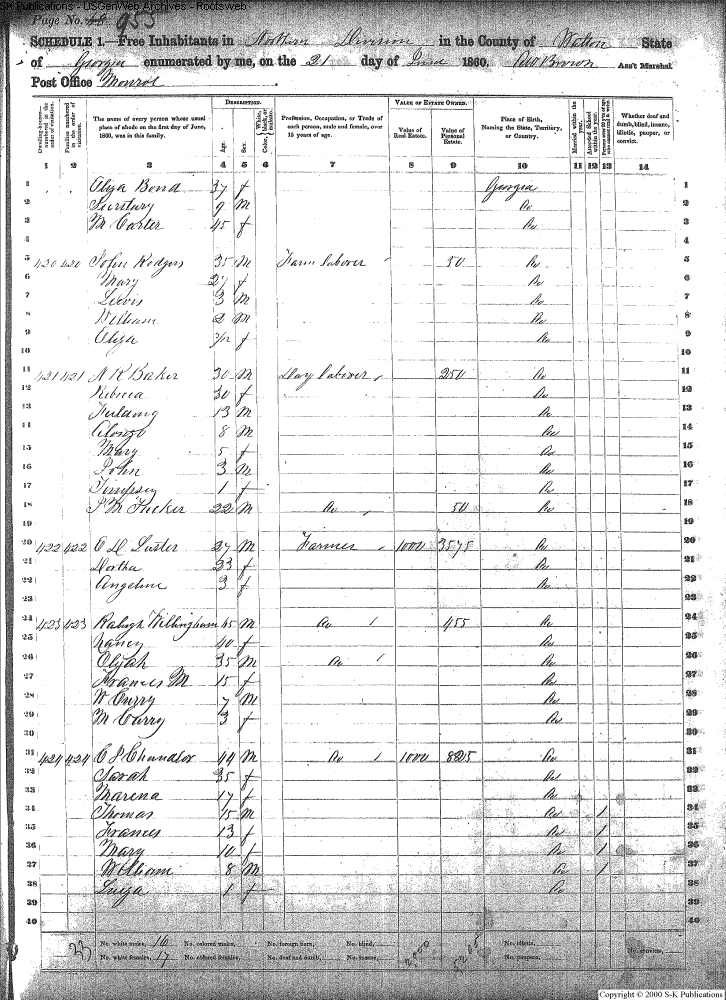 SK Publications - USGenWeb Archives - Rootsweb
Page No. 48 953
SCHEDULE 1.—Free Inhabitants in Northern Division in the County of Walton State
of Georgia enumerated by me, on the 21 day of June 1860. Brown Ass't Marshal.
Post Office Monroe
Dwelling-houses—numbered in the order of visitation.
Families numbered in the order of visitation.
The name of every person whose usual place of abode on the first day of June, 1860, was in this family.
DESCRIPTION.
Age.
Sex.
Color, White, black, or mulatto.
Profession, Occupation, or Trade of each person, male and female, over 15 years of age.
VALUE OF ESTATE OWNED.
Value of Real Estate.
Value of Personal Estate.
Place of Birth, Naming the State, Territory, or Country.
Married within the year.
Attended School within the year.
Whether deaf and dumb, blind, insane, idiotic, pauper, or convict.
1 2 3 4 5 6 7 8 9 10 11 12 13 14
1 Eliza Bond 37 f Georgia 1
2 9 M Do 2
3 M Carter 45 f Do 3
4 4
5 420 420 John Rodgers 35 M Farm laborer 50 Do 5
6 Mary 27 f Do 6
7 Lewis 3 M Do 7
8 William 2 M Do 8
9 Eliza 3/12 f Do 9
10 10
11 421 421 N R Baker 30 M Day laborer 250 Do 11
12 Rebecca 30 f Do 12
13 13 M Do 13
14 Alonzo 8 M Do 14
15 Mary 5 f Do 15
16 John 3 M Do 16
17 Timpsey 1 f Do 17
18 Tucker 22 M Do 50 Do 18
19 19
20 422 422 Luster 27 M Farmer 1000 3575 Do 20
21 Dortha 23 f Do 21
22 Angeline 3 f Do 22
23 23
24 423 423 Raleigh Willingham 45 M Do 455 Do 24
25 Nancy 40 f Do 25
26 Elijah 35 M Do Do 26
27 Frances M 15 f Do 27
28 W Curry 7 M Do 28
29 M Curry 3 f Do 29
30 30
31 424 424 Chandlor 44 M Do 1000 825 Do 31
32 Sarah 35 f Do 32
33 Marena 17 f Do 33
34 Thomas 15 M Do 1 34
35 Frances 13 f Do 1 35
36 Mary 10 f Do 1 36
37 William 8 M Do 1 37
38 Luiza 1 f Do 38
39 39
40 40
33 No. white males, 16 No. colored males, No. foreign born, No. blind, 2,000 5205 No. idiotic, No. convicts,
No. white females, 17 No. colored females, No. deaf and dumb, No. insane, No. paupers,
Copyright © 2000 S-K Publications